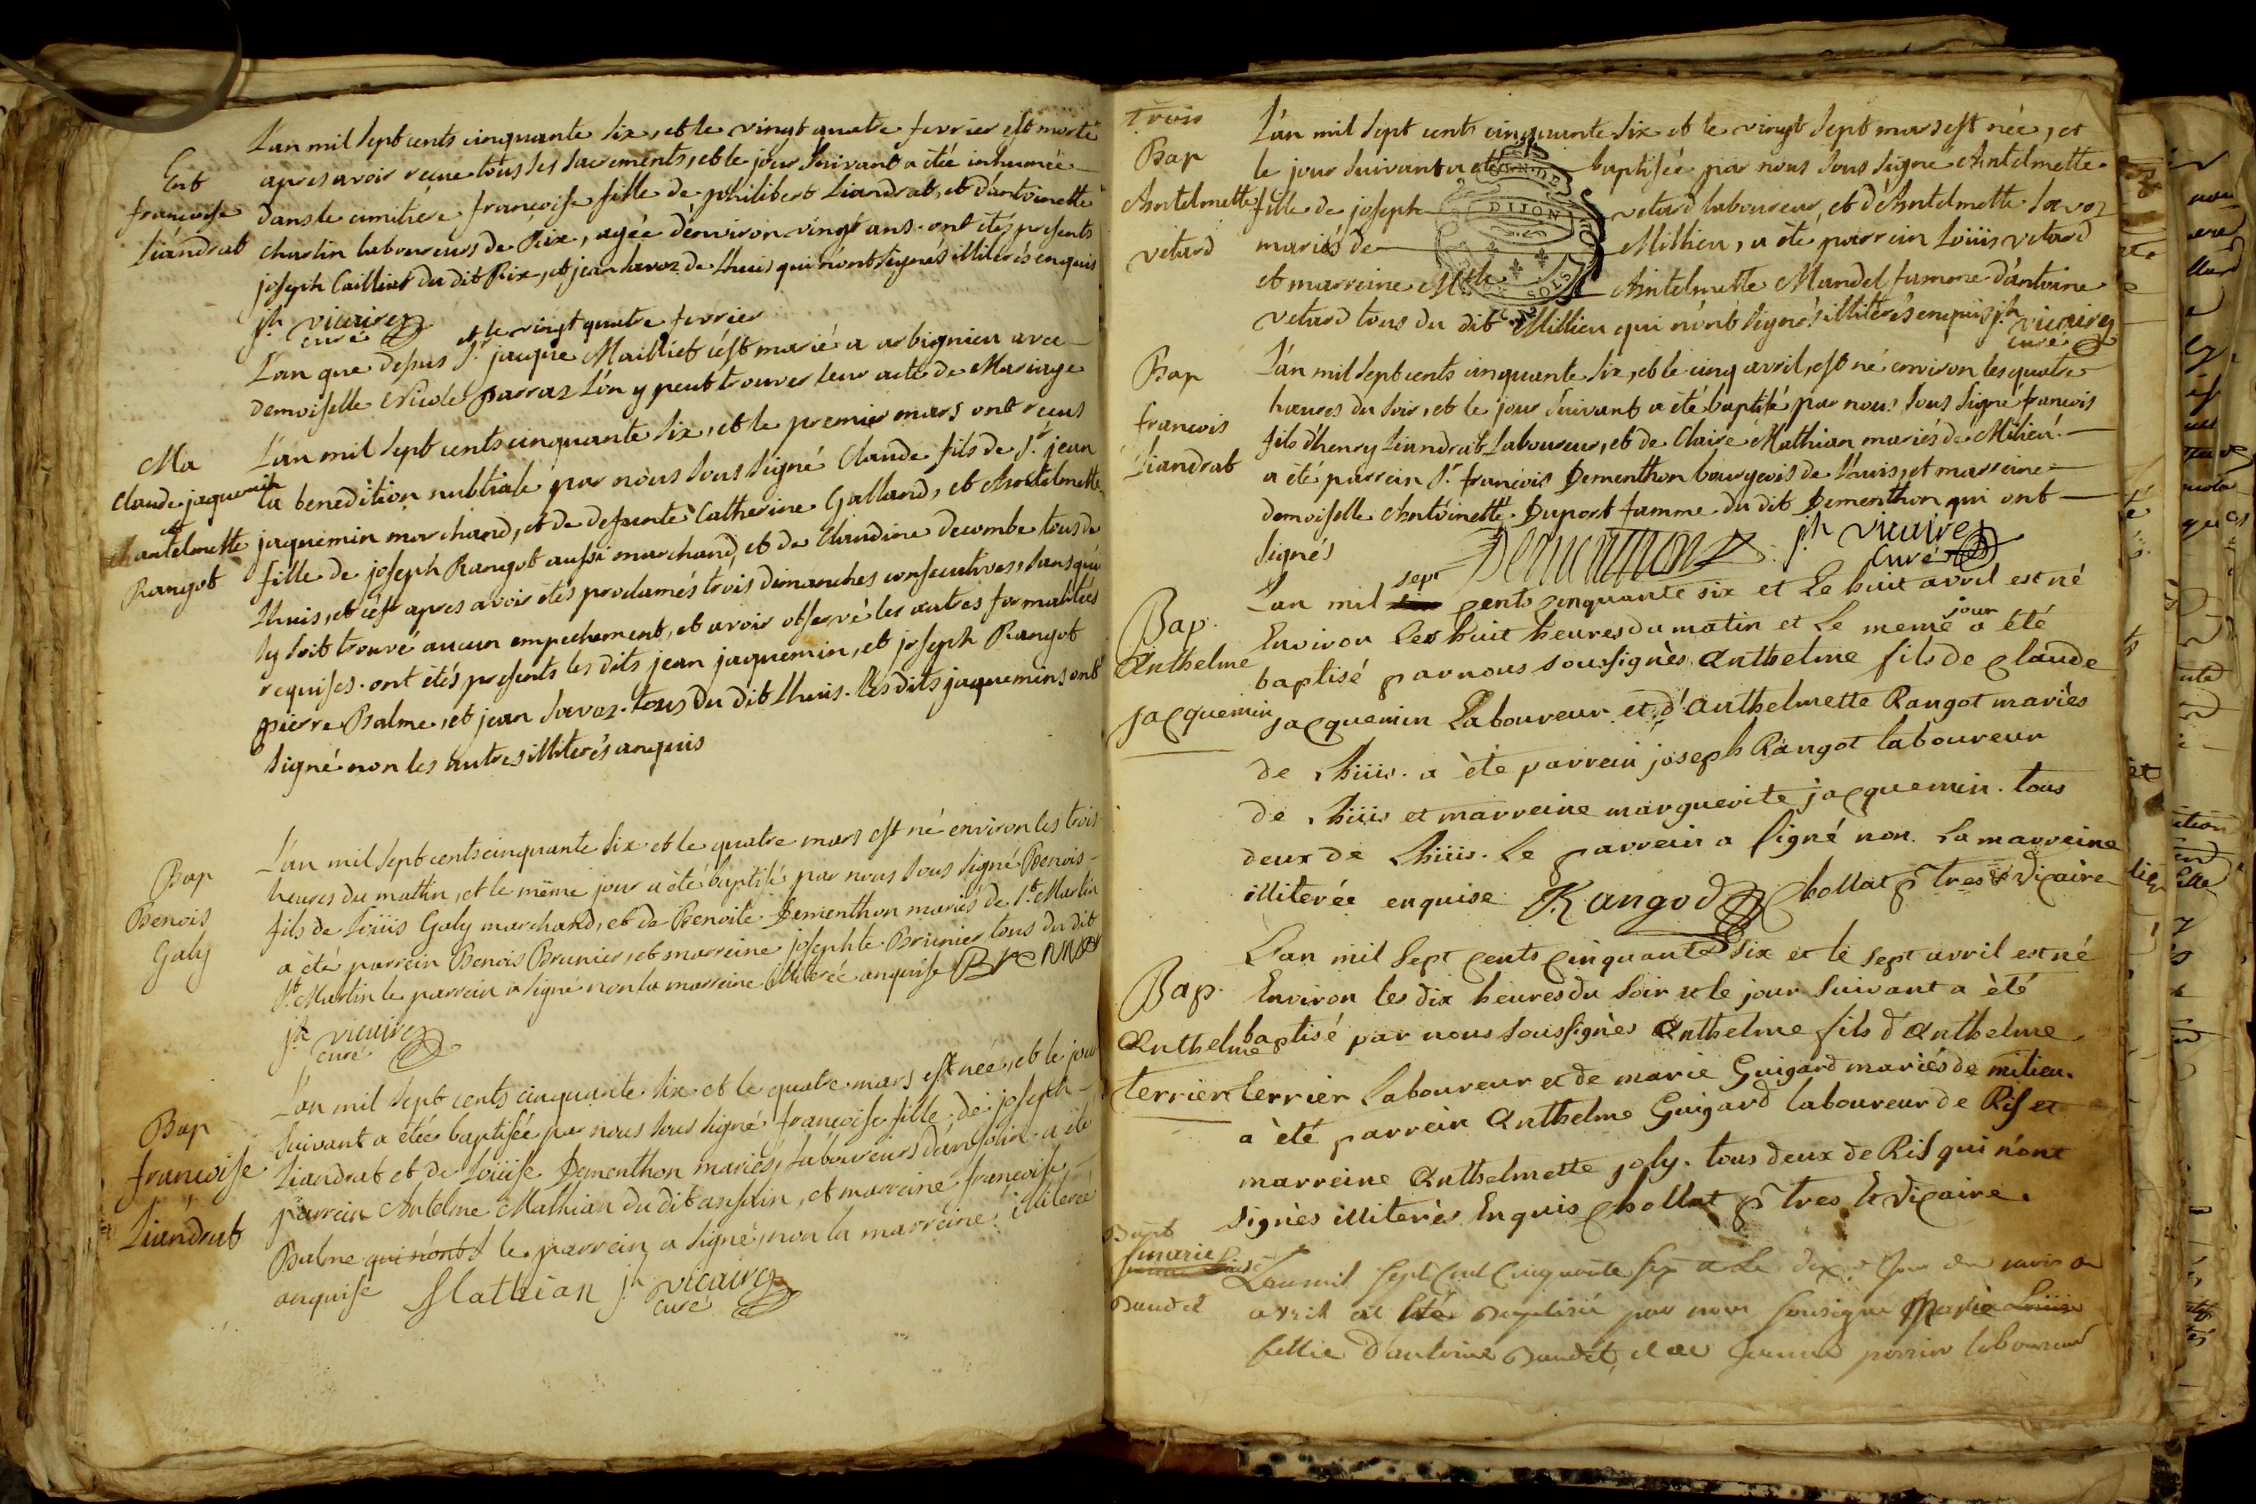 L'an mil sept cents cinquante six, et le vingt quatre fevrier est morte
Ent
apres avoir reçue tous ses sacements, et le jour suivant a étée inhumée
françoise
dans le cimitiére françoise fille de philibert Liandrat, et d'antoinette
Liandrat
charlin laboureurs de Rix, agée d'environ vingt ans. ont étés presents
joseph Cailliat du dit Rix, et jean Savoz de Lhuis qui n'ont signés illiterés enquis
jh vicaire
curé
et le vingt quatre fevrier
L'an que dessus Sr jaque Mailliet s'est marié a arbignieu avec
demoiselle Nicole parraz l'on y peut trouver leur acte de Mariage
Ma
L'an mil sept cents cinquante six, et le premier mars ont reçus
Claude jaquemin
la benedition nubtiale par nous sous signé Claude fils de Sr jean
et
antelmette
jaquemin marchand, et de defuente Catherine Galland, et Antelmette
Rangot
fille de joseph Rangot aussi marchand, et de Claudine decombe tous de
Lhuis, et c'est apres avoir étés proclamés trois dimanches consecutives, sans qu'il
sy soit trouvé aucun empechement, et avoir observé les autres formalités
requises. ont étés presents les dits jean jaquemin, et joseph Rangot
pierre Balme, et jean Savoz. tous du dit Lhuis. les dits jaquemins ont
signé non les autres illiterés anquis
L'an mil sept cents cinquante six et le quatre mars est né environ les trois
Bap
heures du mattin, et le même jour a été baptisé par nous sous signé Benois
Benois
fils de Loüis Galy marchand, et de Benoite Dementhon mariés de St Martin
Galy
a été parrein Benois Brunier, et marreine josephte Brunier tous du dit
St Martin le parrein a signé non la marreine illiterée anquise
jh vicaire
curé
L'an mil sept cents cinquante six et le quatre mars est née, et le jour
Bap
suivant a étée baptisée par nous sous signé françoise fille de joseph
françoise
Liandrat et de Loüise Dementhon mariés, laboureurs d'ansolin. a été
Liandrat
parrein Antelme Mathian du dit ansolin, et marreine françoise
Balme qui n'ont s le parrein a signé, non la marreine illiteré
anquise Mathian jh vicaire
curé
Trois
L'an mil sept cents cinquante six et le vingt sept mars est née, et
Bap
le jour suivant a été baptisée par nous sous signe Antelmette
Antelmette
fille de joseph vetard laboureur, et d'Antelmette Savoz
vetard
DIJON
mariés de Millieu, a été parrein Loüis vetard
et marreine Antelmette Mandel famme d'antoine
vetard tous du dit Millieu qui n'ont signés illiterés enquis jh vicaire
curé
Bap
L'an mil sept cents cinquante six, et le cinq avril, est né environ les quatre
heures du soir, et le jour suivant a été baptisé par nous sous signé françois
francois
fils d'henry Liandrat Laboureur, et de Claire Mathian mariés de Milieu.
Liandrat
a été parrein Sr francois Dementhon bourgeois de Lhuis, et marreine
demoiselle Antoinette Duport famme du dit Dementhon qui ont
signés Dementhon jh vicaire
Curé
L'an mil sept cents cinquante six et Le huit avril est né
Bap.
Environ Les huit heures du matin et Le meme jour a été
Anthelme
baptisé par nous soussignès Anthelme fils de Claude
jacquemin
jacquemin Laboureur et d'Anthelmette Rangot mariès
de Lhüis. a ètè parrein joseph Rangot laboureur
de Lhüis et marreine marguerite jacquemin. tous
deux de Lhüis. Le parrein a signé non La marreine
illiterée enquise Rangod Chollat Ptres Vicaire
L'an mil Sept Cents Cinquante Six et le sept avril est né
Bap.
Environ les dix heures du Soir et le jour Suivant a èté
Anthelme
baptisé par nous soussignès Anthelme fils d'Anthelme
terrier
terrier Laboureur et de marie Guigard mariés de milieu.
a èté parrein Anthelme Guigard laboureur de Rif et
marreine Anthelmette joly. tous deux de Rif qui n'ont
signès illiterès Enquis Chollat Ptres Et Vicaire.
Bapt
marie
Baudet
L'an mil sept Cent Cinquante six et Le dix jour du mois
avril at eté Baptisée par nous sousigne Marie Loüise
fellie d'antoine Baudet, et de perrin laboureur